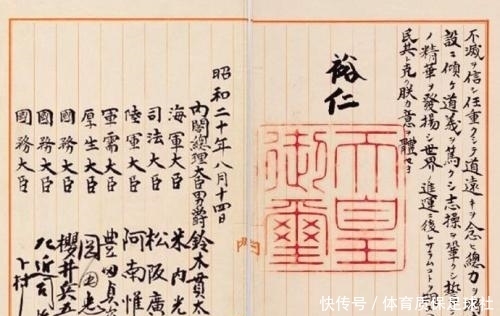 不滅ヲ信シ任重クシテ道遠キヲ念ヒ總力ヲ
設ニ傾ケ道義ヲ篤クシ志操ヲ鞏クシ誓
ノ精華ヲ發揚シ世界ノ進運ニ後レサラムコトヲ
民其レ克ク朕カ意ヲ體セヨ
裕仁
天皇
御璽
昭和二十年八月十四日
內閣總理大臣男爵鈴木貫太
海軍大臣 米內光
司法大臣 松阪廣
陸軍大臣 阿南惟
軍需大臣 豊田貞
厚生大臣 岡田忠
國務大臣 櫻井兵五
國務大臣 左近司
國務大臣 下村
快传号/体育质保足球社